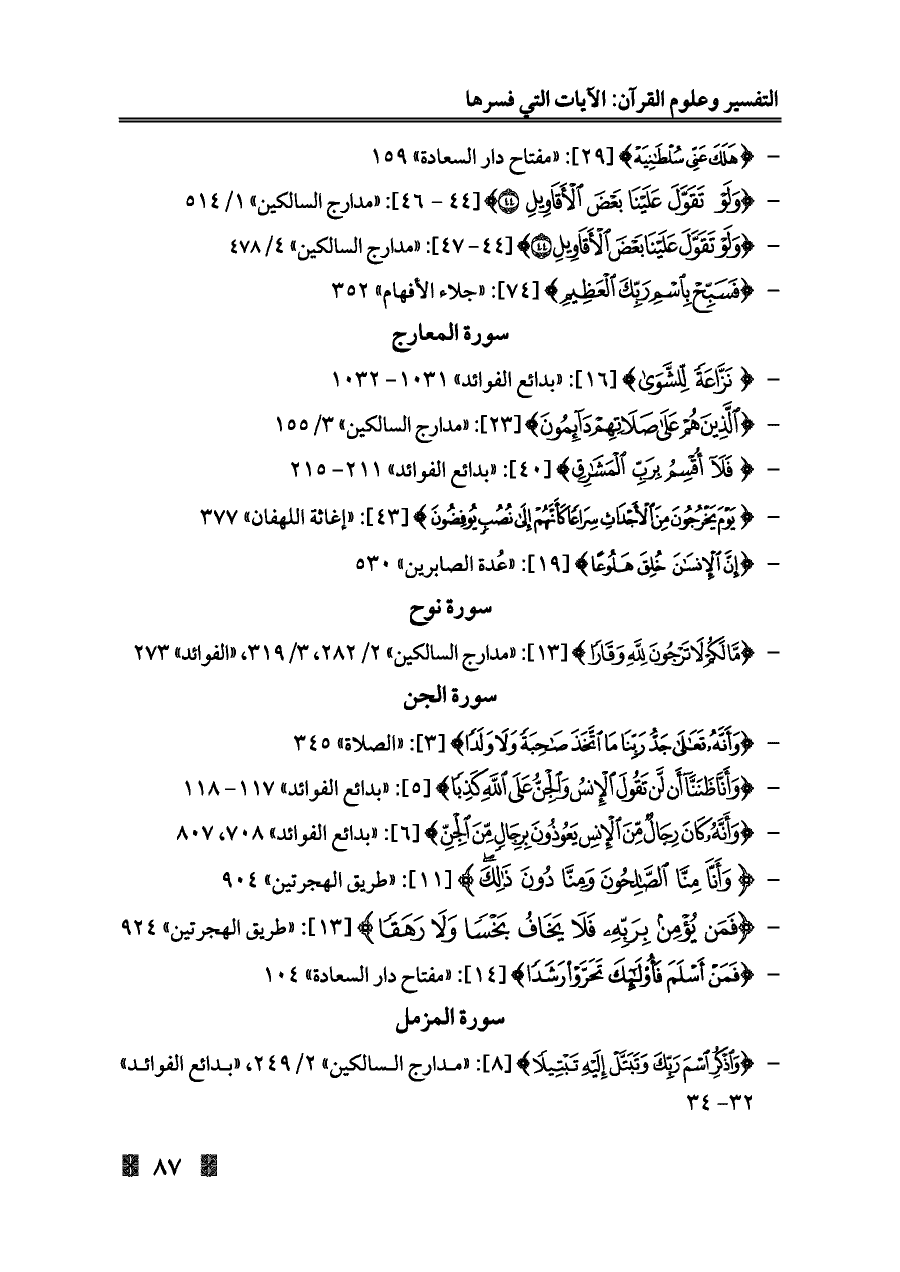 التفسير وعلوم القرآن: الآيات التي فسرها
- ﴿هَلَكَ عَنِّي سُلْطَٰنِيَهْ﴾ [٢٩]: «مفتاح دار السعادة» ١٥٩
- ﴿وَلَوْ تَقَوَّلَ عَلَيْنَا بَعْضَ ٱلْأَقَاوِيلِ ۝٤٤﴾ [٤٤ - ٤٦]: «مدارج السالكين» ١/ ٥١٤
- ﴿وَلَوْ تَقَوَّلَ عَلَيْنَا بَعْضَ ٱلْأَقَاوِيلِ ۝٤٤﴾ [٤٤-٤٧]: «مدارج السالكين» ٤/ ٤٧٨
- ﴿فَسَبِّحْ بِٱسْمِ رَبِّكَ ٱلْعَظِيمِ﴾ [٧٤]: «جلاء الأفهام» ٣٥٢
سورة المعارج
- ﴿نَزَّاعَةً لِّلشَّوَىٰ﴾ [١٦]: «بدائع الفوائد» ١٠٣١- ١٠٣٢
- ﴿ٱلَّذِينَ هُمْ عَلَىٰ صَلَاتِهِمْ دَآئِمُونَ﴾ [٢٣]: «مدارج السالكين» ٣/ ١٥٥
- ﴿فَلَآ أُقْسِمُ بِرَبِّ ٱلْمَشَٰرِقِ﴾ [٤٠]: «بدائع الفوائد» ٢١١- ٢١٥
- ﴿يَوْمَ يَخْرُجُونَ مِنَ ٱلْأَجْدَاثِ سِرَاعًا كَأَنَّهُمْ إِلَىٰ نُصُبٍ يُوفِضُونَ﴾ [٤٣]: «إغاثة اللهفان» ٣٧٧
- ﴿إِنَّ ٱلْإِنسَٰنَ خُلِقَ هَلُوعًا﴾ [١٩]: «عُدة الصابرين» ٥٣٠
سورة نوح
- ﴿مَّا لَكُمْ لَا تَرْجُونَ لِلَّهِ وَقَارًا﴾ [١٣]: «مدارج السالكين» ٢/ ٢٨٢، ٣/ ٣١٩، «الفوائد» ٢٧٣
سورة الجن
- ﴿وَأَنَّهُۥ تَعَٰلَىٰ جَدُّ رَبِّنَا مَا ٱتَّخَذَ صَٰحِبَةً وَلَا وَلَدًا﴾ [٣]: «الصلاة» ٣٤٥
- ﴿وَأَنَّا ظَنَنَّآ أَن لَّن تَقُولَ ٱلْإِنسُ وَٱلْجِنُّ عَلَى ٱللَّهِ كَذِبًا﴾ [٥]: «بدائع الفوائد» ١١٧- ١١٨
- ﴿وَأَنَّهُۥ كَانَ رِجَالٌ مِّنَ ٱلْإِنسِ يَعُوذُونَ بِرِجَالٍ مِّنَ ٱلْجِنِّ﴾ [٦]: «بدائع الفوائد» ٧٠٨، ٨٠٧
- ﴿وَأَنَّا مِنَّا ٱلصَّٰلِحُونَ وَمِنَّا دُونَ ذَٰلِكَۖ﴾ [١١]: «طريق الهجرتين» ٩٠٤
- ﴿فَمَن يُؤْمِنۢ بِرَبِّهِۦ فَلَا يَخَافُ بَخْسًا وَلَا رَهَقًا﴾ [١٣]: «طريق الهجرتين» ٩٢٤
- ﴿فَمَنْ أَسْلَمَ فَأُو۟لَٰٓئِكَ تَحَرَّوْا۟ رَشَدًا﴾ [١٤]: «مفتاح دار السعادة» ١٠٤
سورة المزمل
- ﴿وَٱذْكُرِ ٱسْمَ رَبِّكَ وَتَبَتَّلْ إِلَيْهِ تَبْتِيلًا﴾ [٨]: «مدارج السالكين» ٢/ ٢٤٩، «بدائع الفوائد»
٣٢- ٣٤
٨٧